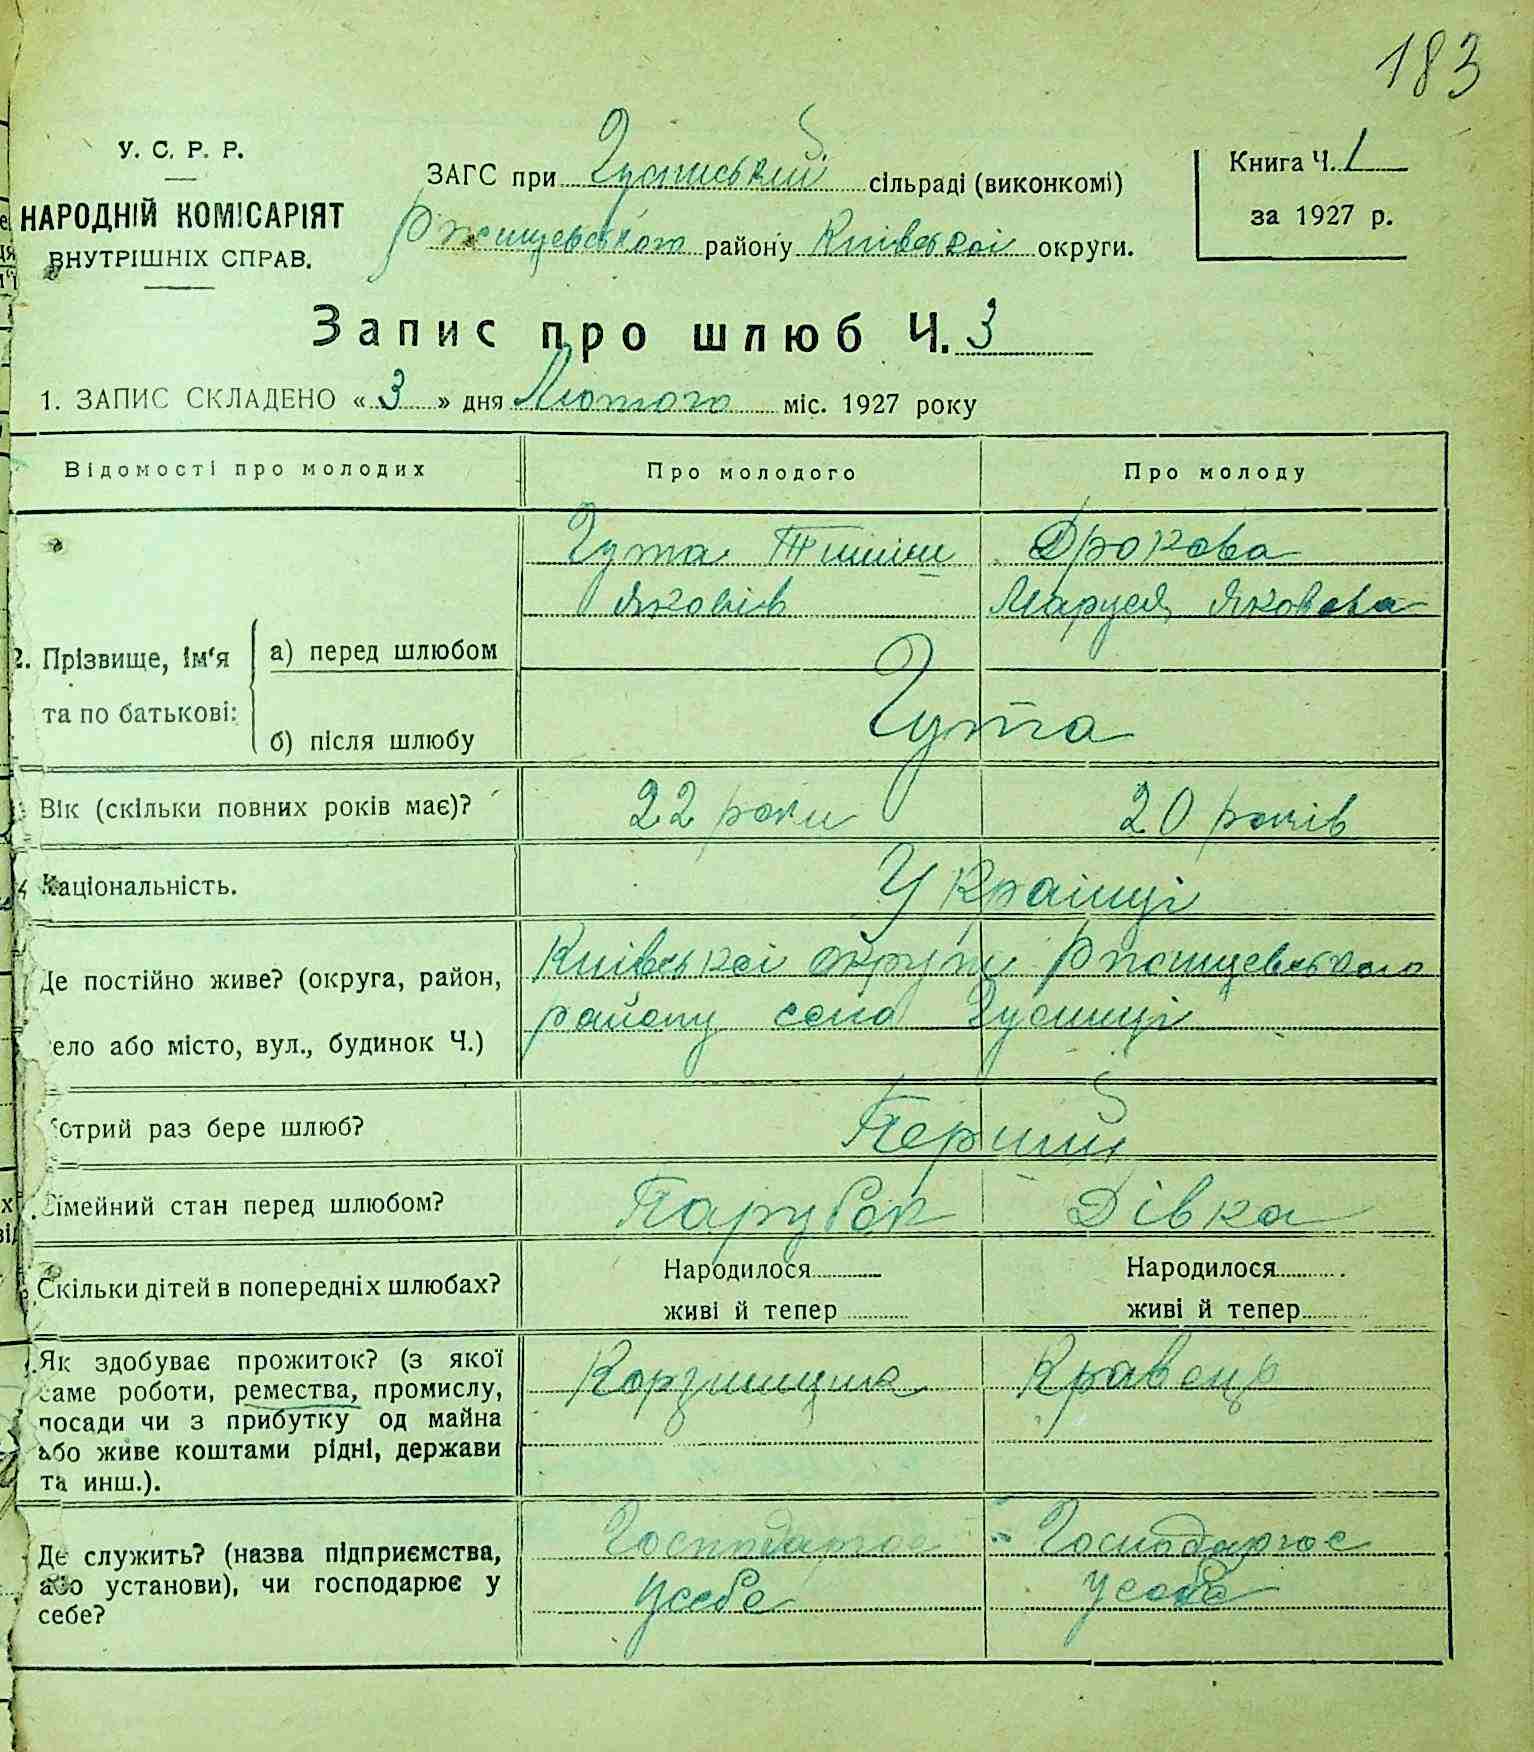 183
У. С. Р. Р.
НАРОДНІЙ КОМІСАРІЯТ
ВНУТРІШНІХ СПРАВ.
ЗАГС при сільраді (виконкомі)
Ржищевського району Київської округи.
Книга Ч. 1
за 1927 р.
Запис про шлюб Ч. 3
1. ЗАПИС СКЛАДЕНО « 3 » дня Лютого міс. 1927 року
Відомості про молодих
Про молодого
Про молоду
2. Прізвище, ім'я
та по батькові:
а) перед шлюбом
Яковів
Дрокова
Маруся Яковева
б) після шлюбу
Вік (скільки повних років має)?
22 роки
20 років
Національність.
Українці
Де постійно живе? (округа, район,
село або місто, вул., будинок Ч.)
Київської округи Ржищевського
району село
Котрий раз бере шлюб?
Перший
Сімейний стан перед шлюбом?
Парубок
Дівка
Скільки дітей в попередніх шлюбах?
Народилося
живі й тепер
Народилося
живі й тепер
Як здобуває прожиток? (з якої
саме роботи, ремества, промислу,
посади чи з прибутку од майна
або живе коштами рідні, держави
та инш.).
Корзинщик
Кравець
Де служить? (назва підприємства,
або установи), чи господарює у
себе?
Господарює
усебе
Господарює
усебе